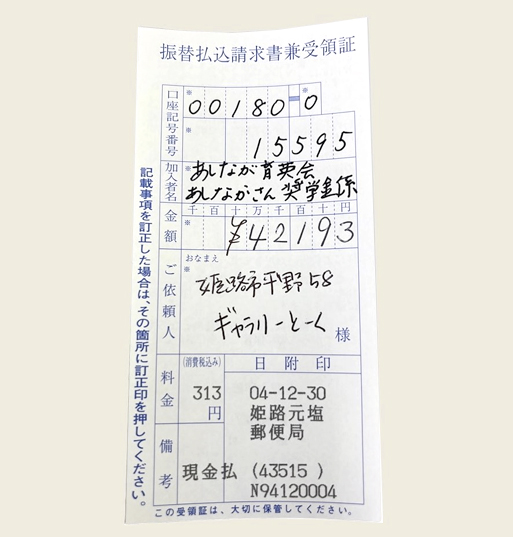 振替払込請求書兼受領証
口座記号番号
※
00180-0
※
※
15595
加入者名
※
あしなが育英会
あしながさん奨学金係
金額
千百十万千百十円
※
¥42193
ご依頼人
おなまえ
※
姫路市平野58
ギャラリーとーく
様
料金
(消費税込み)
313
円
日附印
04-12-30
姫路元塩
郵便局
備考
現金払 (43515 )
N94120004
この受領証は、大切に保管してください。
記載事項を訂正した場合は、その箇所に訂正印を押してください。